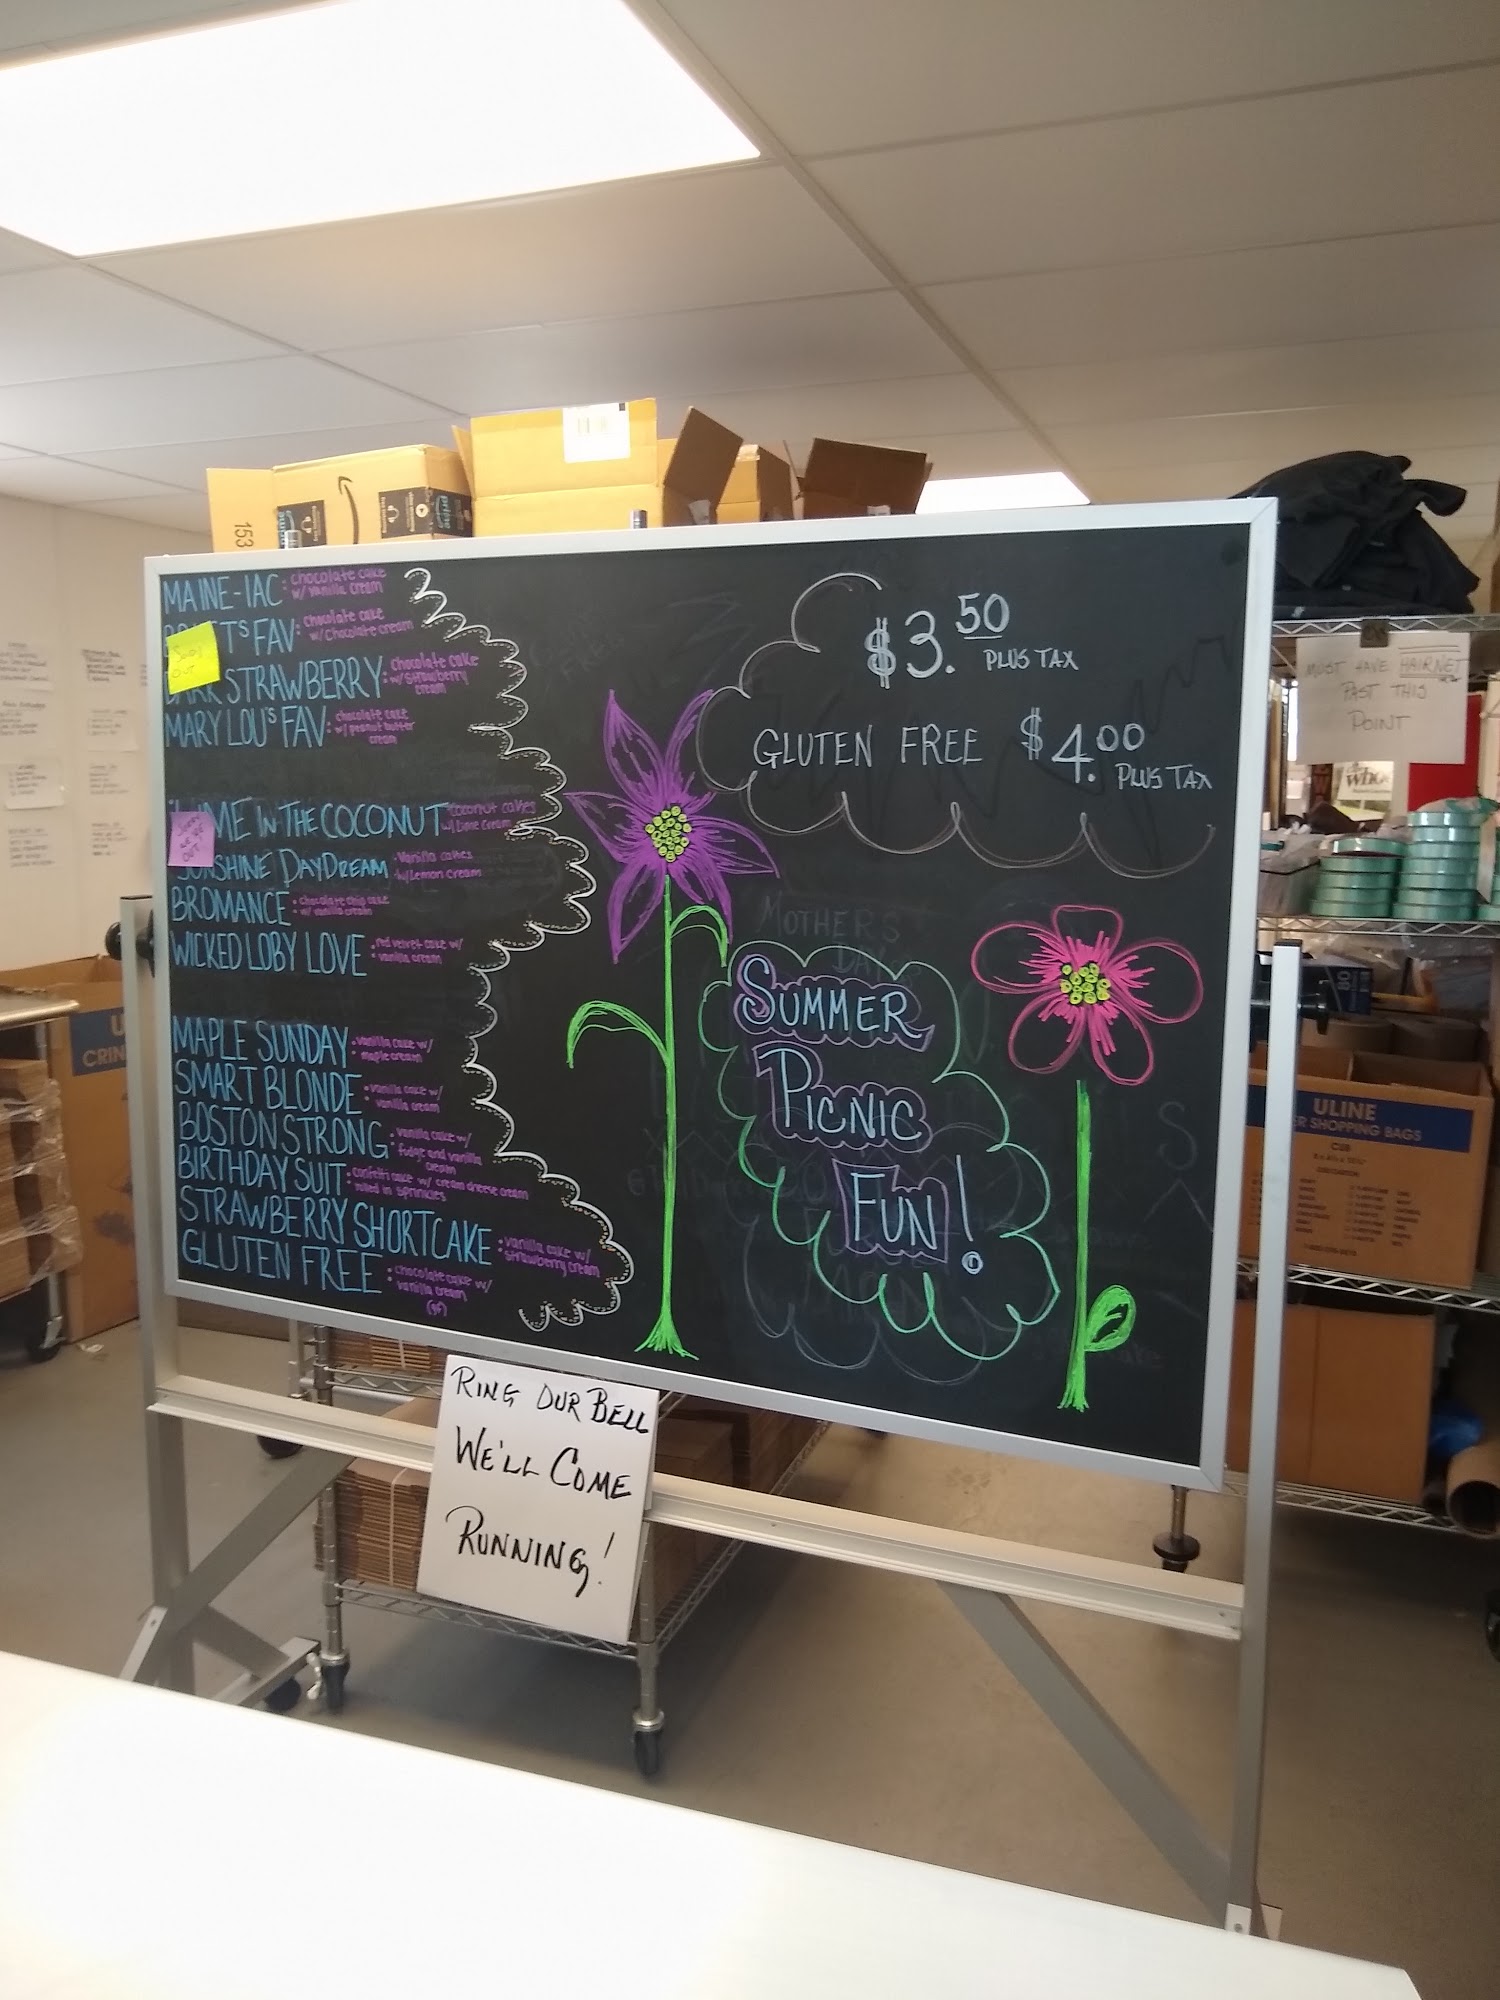 MAINE-IAC: chocolate cake
w/ vanilla cream
T'S FAV: chocolate cake
w/ chocolate cream
SORRY
OUT
DARK STRAWBERRY: chocolate cake
w/ strawberry
cream
MARY LOU'S FAV: chocolate cake
w/ peanut butter
cream
LIME IN THE COCONUT: coconut cakes
w/ Lime Cream
SORRY
WE'RE
OUT
SUNSHINE DAYDREAM: Vanilla cakes
w/ Lemon Cream
BROMANCE: chocolate chip cake
w/ vanilla cream
WICKED LOBY LOVE: red velvet cake w/
vanilla cream
MAPLE SUNDAY: vanilla cake w/
maple cream
SMART BLONDE: vanilla cake w/
vanilla cream
BOSTON STRONG: vanilla cake w/
fudge and vanilla
cream
BIRTHDAY SUIT: confetti cake w/ cream cheese cream
rolled in sprinkles
STRAWBERRY SHORTCAKE: vanilla cake w/
strawberry cream
GLUTEN FREE: chocolate cake w/
vanilla cream
(gf)
$3.50
PLUS TAX
GLUTEN FREE $4.00
PLUS TAX
MOTHERS
DAY
SUMMER
PICNIC
FUN!
RING OUR BELL
WE'LL COME
RUNNING!
MUST HAVE HAIRNET
PAST THIS
POINT
ULINE
SHOPPING BAGS
CUB
153
prime